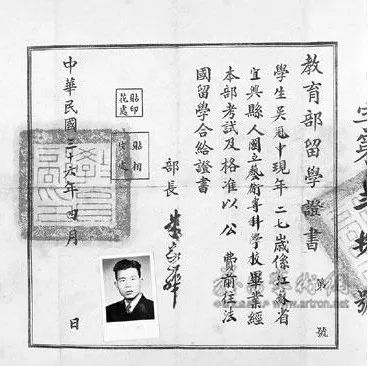 教育部留學證書
第 號
學生吳冠中現年二七歲係江蘇省
宜興縣人國立藝術專科學校畢業經
本部考試及格准以公費前往法
國留學合給證書
部長
朱家驊
貼印花處
貼相片處
中華民國三十六年四月 日
號
www.artron.net